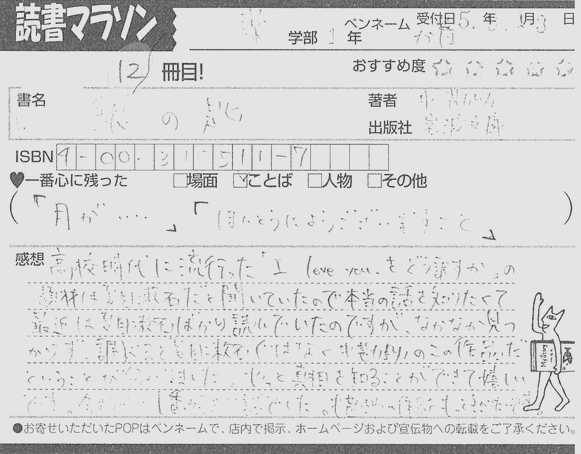 読書マラソン
薬 学部 1 年 ペンネーム 受付日 5. 年 月 3 日
12 冊目!
おすすめ度 ☆ ☆ ☆ ☆ ☆
書名 銀の匙
著者 中 勘助
出版社 岩波文庫
ISBN 4-00-310511-7
♥一番心に残った □場面 ☑ことば □人物 □その他
(「月が‥‥」「ほんとうにようございますこと」)
感想 高校時代に流行った「I love you. をどう訳すか」の
題材は夏目漱石だと聞いていたので本当の話を知りたくて
最近は夏目漱石ばかり読んでいたのですが、なかなか見つ
からず、調べると夏目漱石ではなく のこの作品だ
ということが ました。 真相を知ることができて嬉しい
です。 1番 でした。
●お寄せいただいたPOPはペンネームで、店内で掲示、ホームページおよび宣伝物への転載をご了承ください。